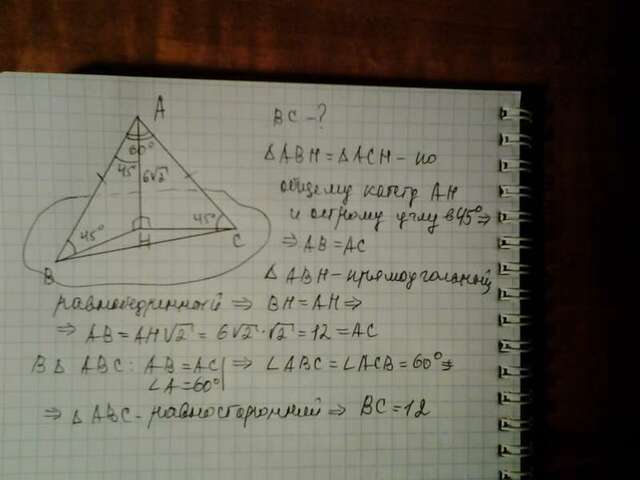 A
60°
45°
6√2
45°
45°
H
C
B
BC - ?
△ABH = △ACH - по
общему катету AH
и острому углу в 45° ⇒
⇒ AB = AC
△ABH - прямоугольный,
равнобедренный ⇒ BH = AH ⇒
⇒ AB = AH√2 = 6√2·√2 = 12 = AC
В △ ABC: AB = AC| ⇒ ∠ABC = ∠ACB = 60° ⇒
∠A = 60°|
⇒ △ABC - равносторонний ⇒ BC = 12